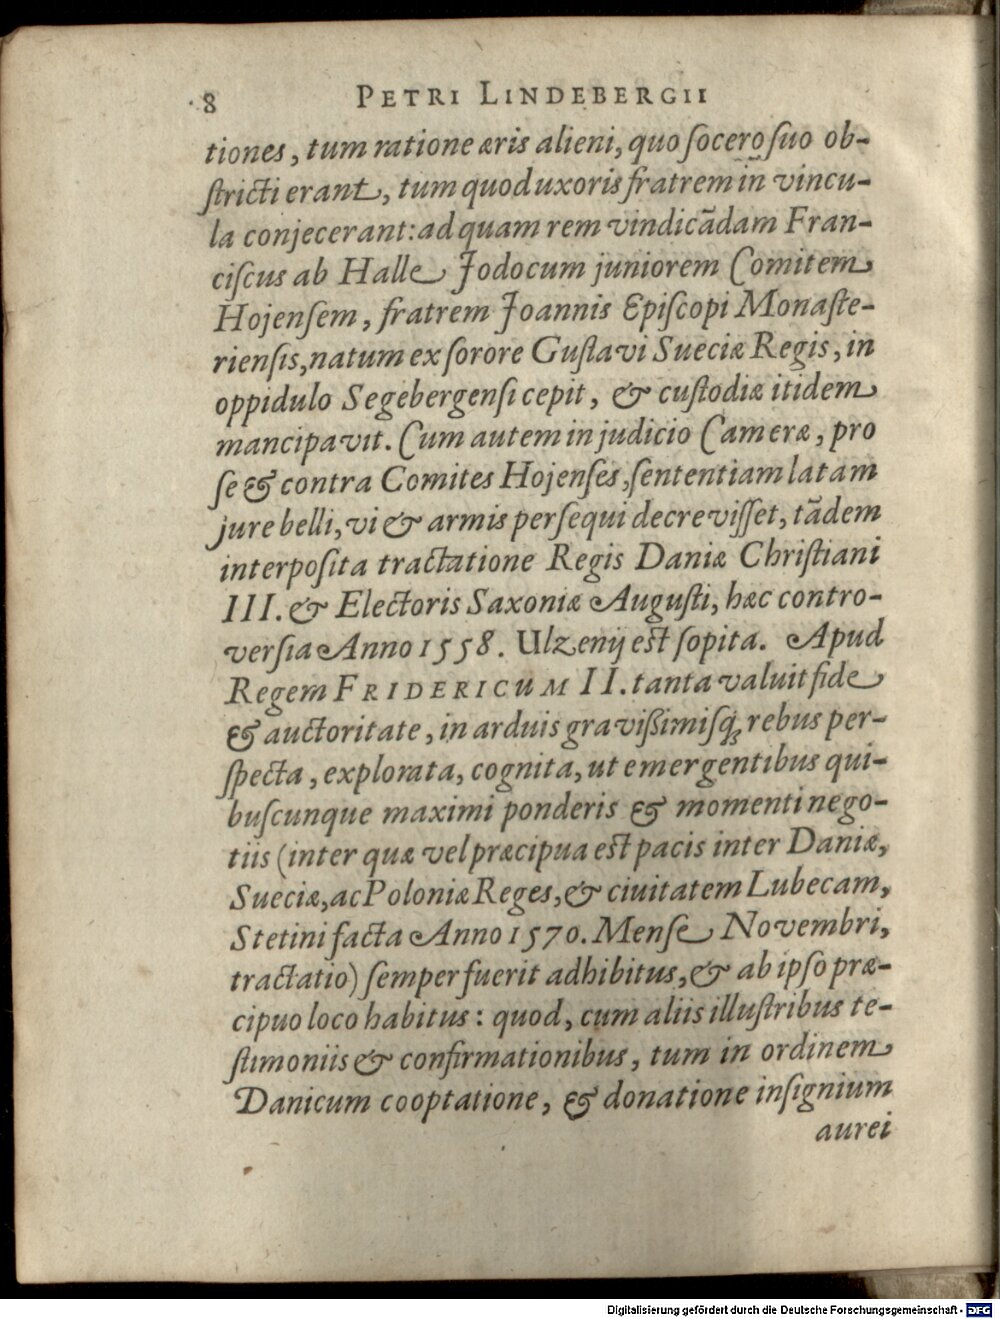 8 PETRI LINDEBERGII
tiones, tum ratione æris alieni, quo ſocero ſuo ob-
ſtricti erant, tum quod uxoris fratrem in̄ vincu-
la conjecerant: ad quam rem vindicādam Fran-
ciſcus ab Halle Jodocum juniorem Comitem
Hojenſem, fratrem Joannis Epiſcopi Monaſte-
rienſis, natum ex ſorore Guſtavi Sueciæ Regis, in
oppidulo Segebergenſi cepit, & cuſtodiæ itidem
mancipavit. Cum autem in judicio Cameræ, pro
ſe & contra Comites Hojenſes, ſententiam latam
jure belli, vi & armis perſequi decreviſſet, tādem
interpoſita tractatione Regis Daniæ Chriſtiani
III. & Electoris Saxoniæ Auguſti, hæc contro-
verſia Anno 1558. Ulzenij eſt ſopita. Apud
Regem FRIDERICUM II. tanta valuit fide
& auctoritate, in arduis graviſſimiſq; rebus per-
ſpecta, explorata, cognita, ut emergentibus qui-
buſcunque maximi ponderis & momenti nego-
tiis (inter quæ vel præcipua eſt pacis inter Daniæ,
Sueciæ, ac Poloniæ Reges, & ciuitatem Lubecam,
Stetini facta Anno 1570. Menſe Novembri,
tractatio) ſemper fuerit adhibitus, & ab ipſo præ-
cipuo loco habitus: quod, cum aliis illuſtribus te-
ſtimoniis & confirmationibus, tum in ordinem
Danicum cooptatione, & donatione inſignium
aurei
Digitalisierung gefördert durch die Deutsche Forschungsgemeinschaft - DFG